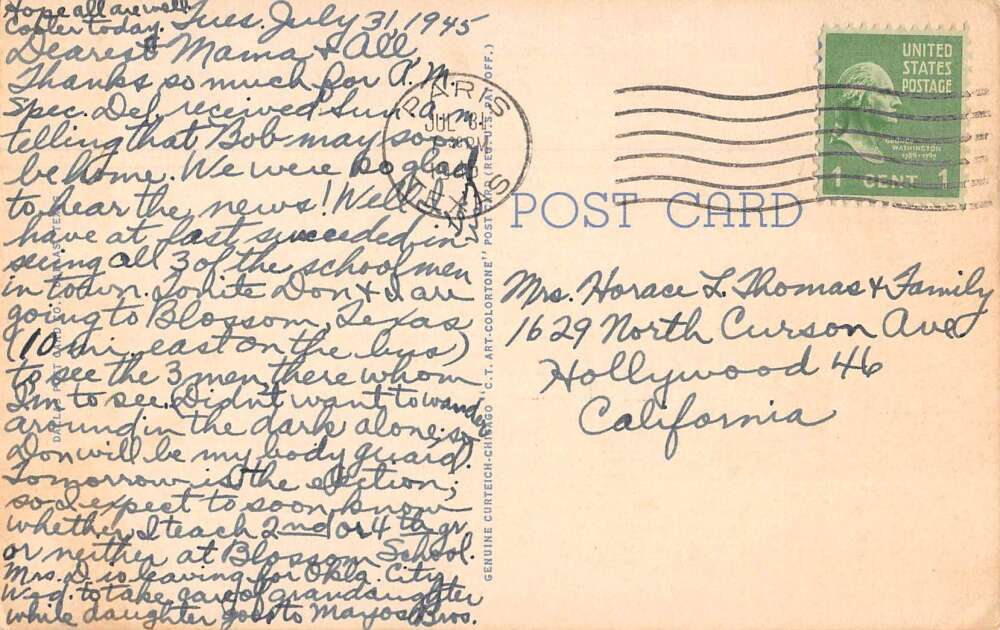 Hope all are well.
Cooler today. Tues. July 31, 1945
Dearest Mama & All
Thanks so much for A.M.
Spec. Del. received Sun. a.m.
telling that Bob may soon
be home. We were so glad
to hear the news! Well I
have at last succeeded in
seeing all 3 of the school men
in town. Tonite Don & I are
going to Blossom, Texas
(10 mi. east on the bus)
to see the 3 men there whom
I'm to see. Didn't want to wander
around in the dark alone so
Don will be my body guard.
Tomorrow is the election;
so I expect to soon know
whether I teach 2nd or 4th gr.
or neither at Blossom School.
Mrs. D. is leaving for Okla. City
Wed. to take care of grandaughter
while daughter goes to Mayos Bros.
GENUINE CURTEICH-CHICAGO "C.T. ART-COLORTONE" POST CARD (REG. U.S. PAT. OFF.)
PARIS
JUL 31
PM
TEXAS
UNITED
STATES
POSTAGE
GEORGE
WASHINGTON
1789-1797
1 CENT 1
POST CARD
Mrs. Horace L. Thomas & Family
1629 North Curson Ave
Hollywood 46
California